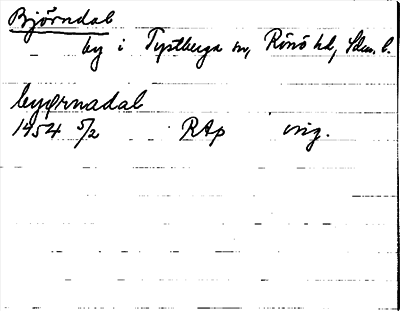 Björndal
by i Tystberga sn, Rönö hd, Sdm. l.
byørnadal
1454 5/2 RAp orig.